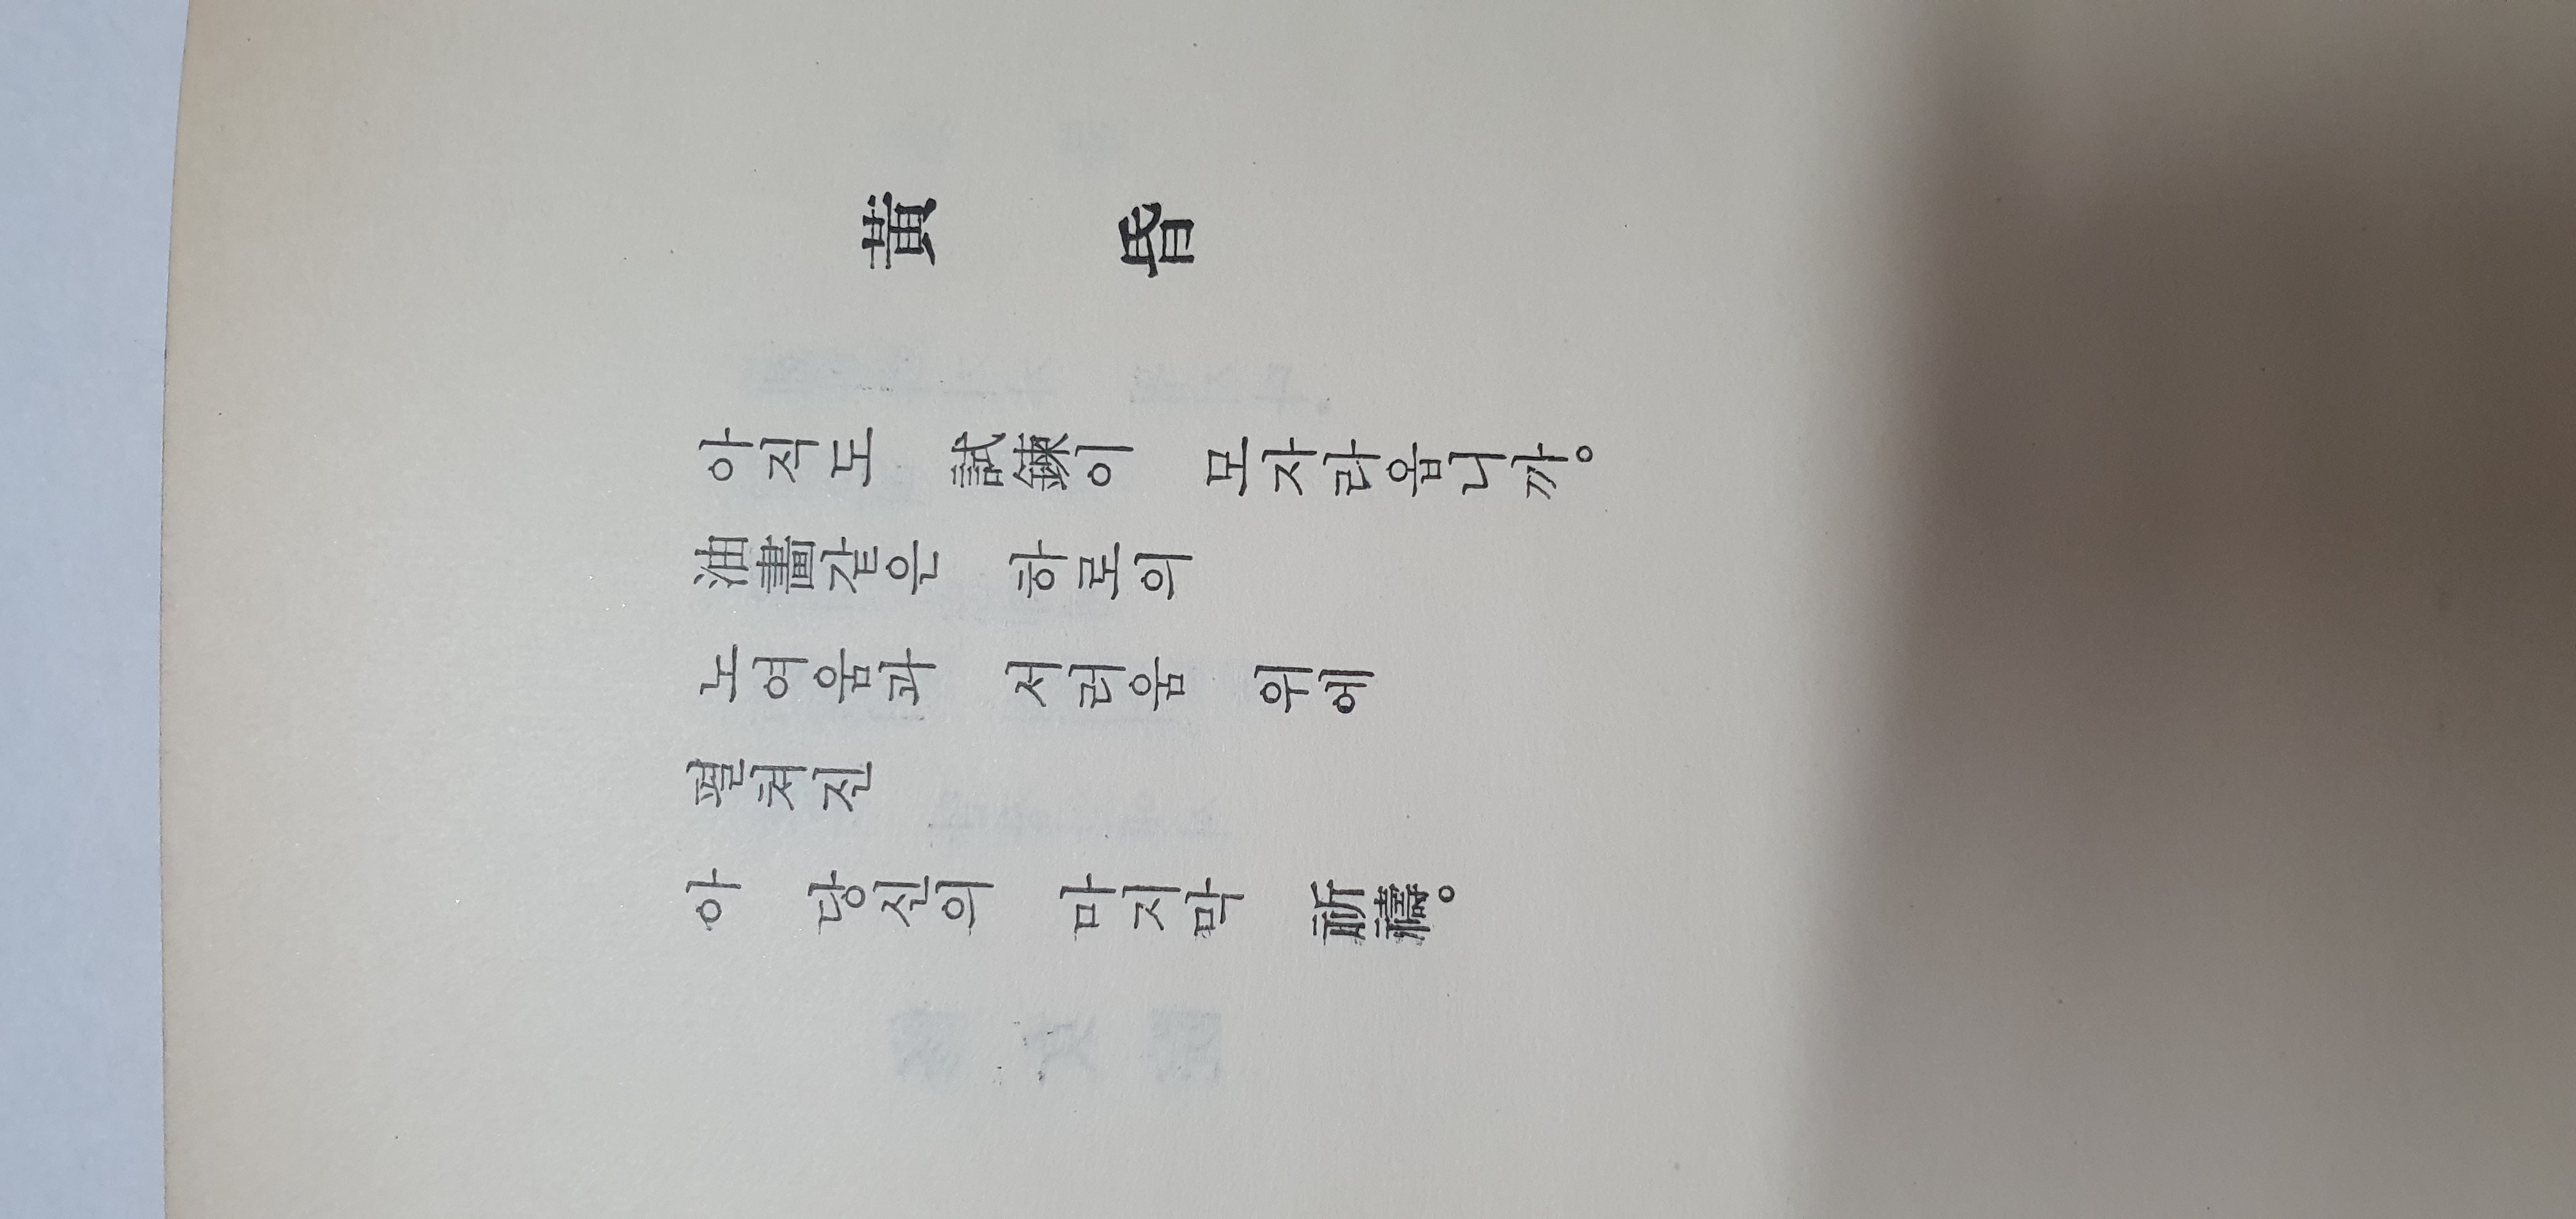 黃 昏
아직도 試鍊이 모자라옵니까。
油畵같은 하로의
노여움과 서러움 위에
펼쳐진
아 당신의 마지막 祈禱。